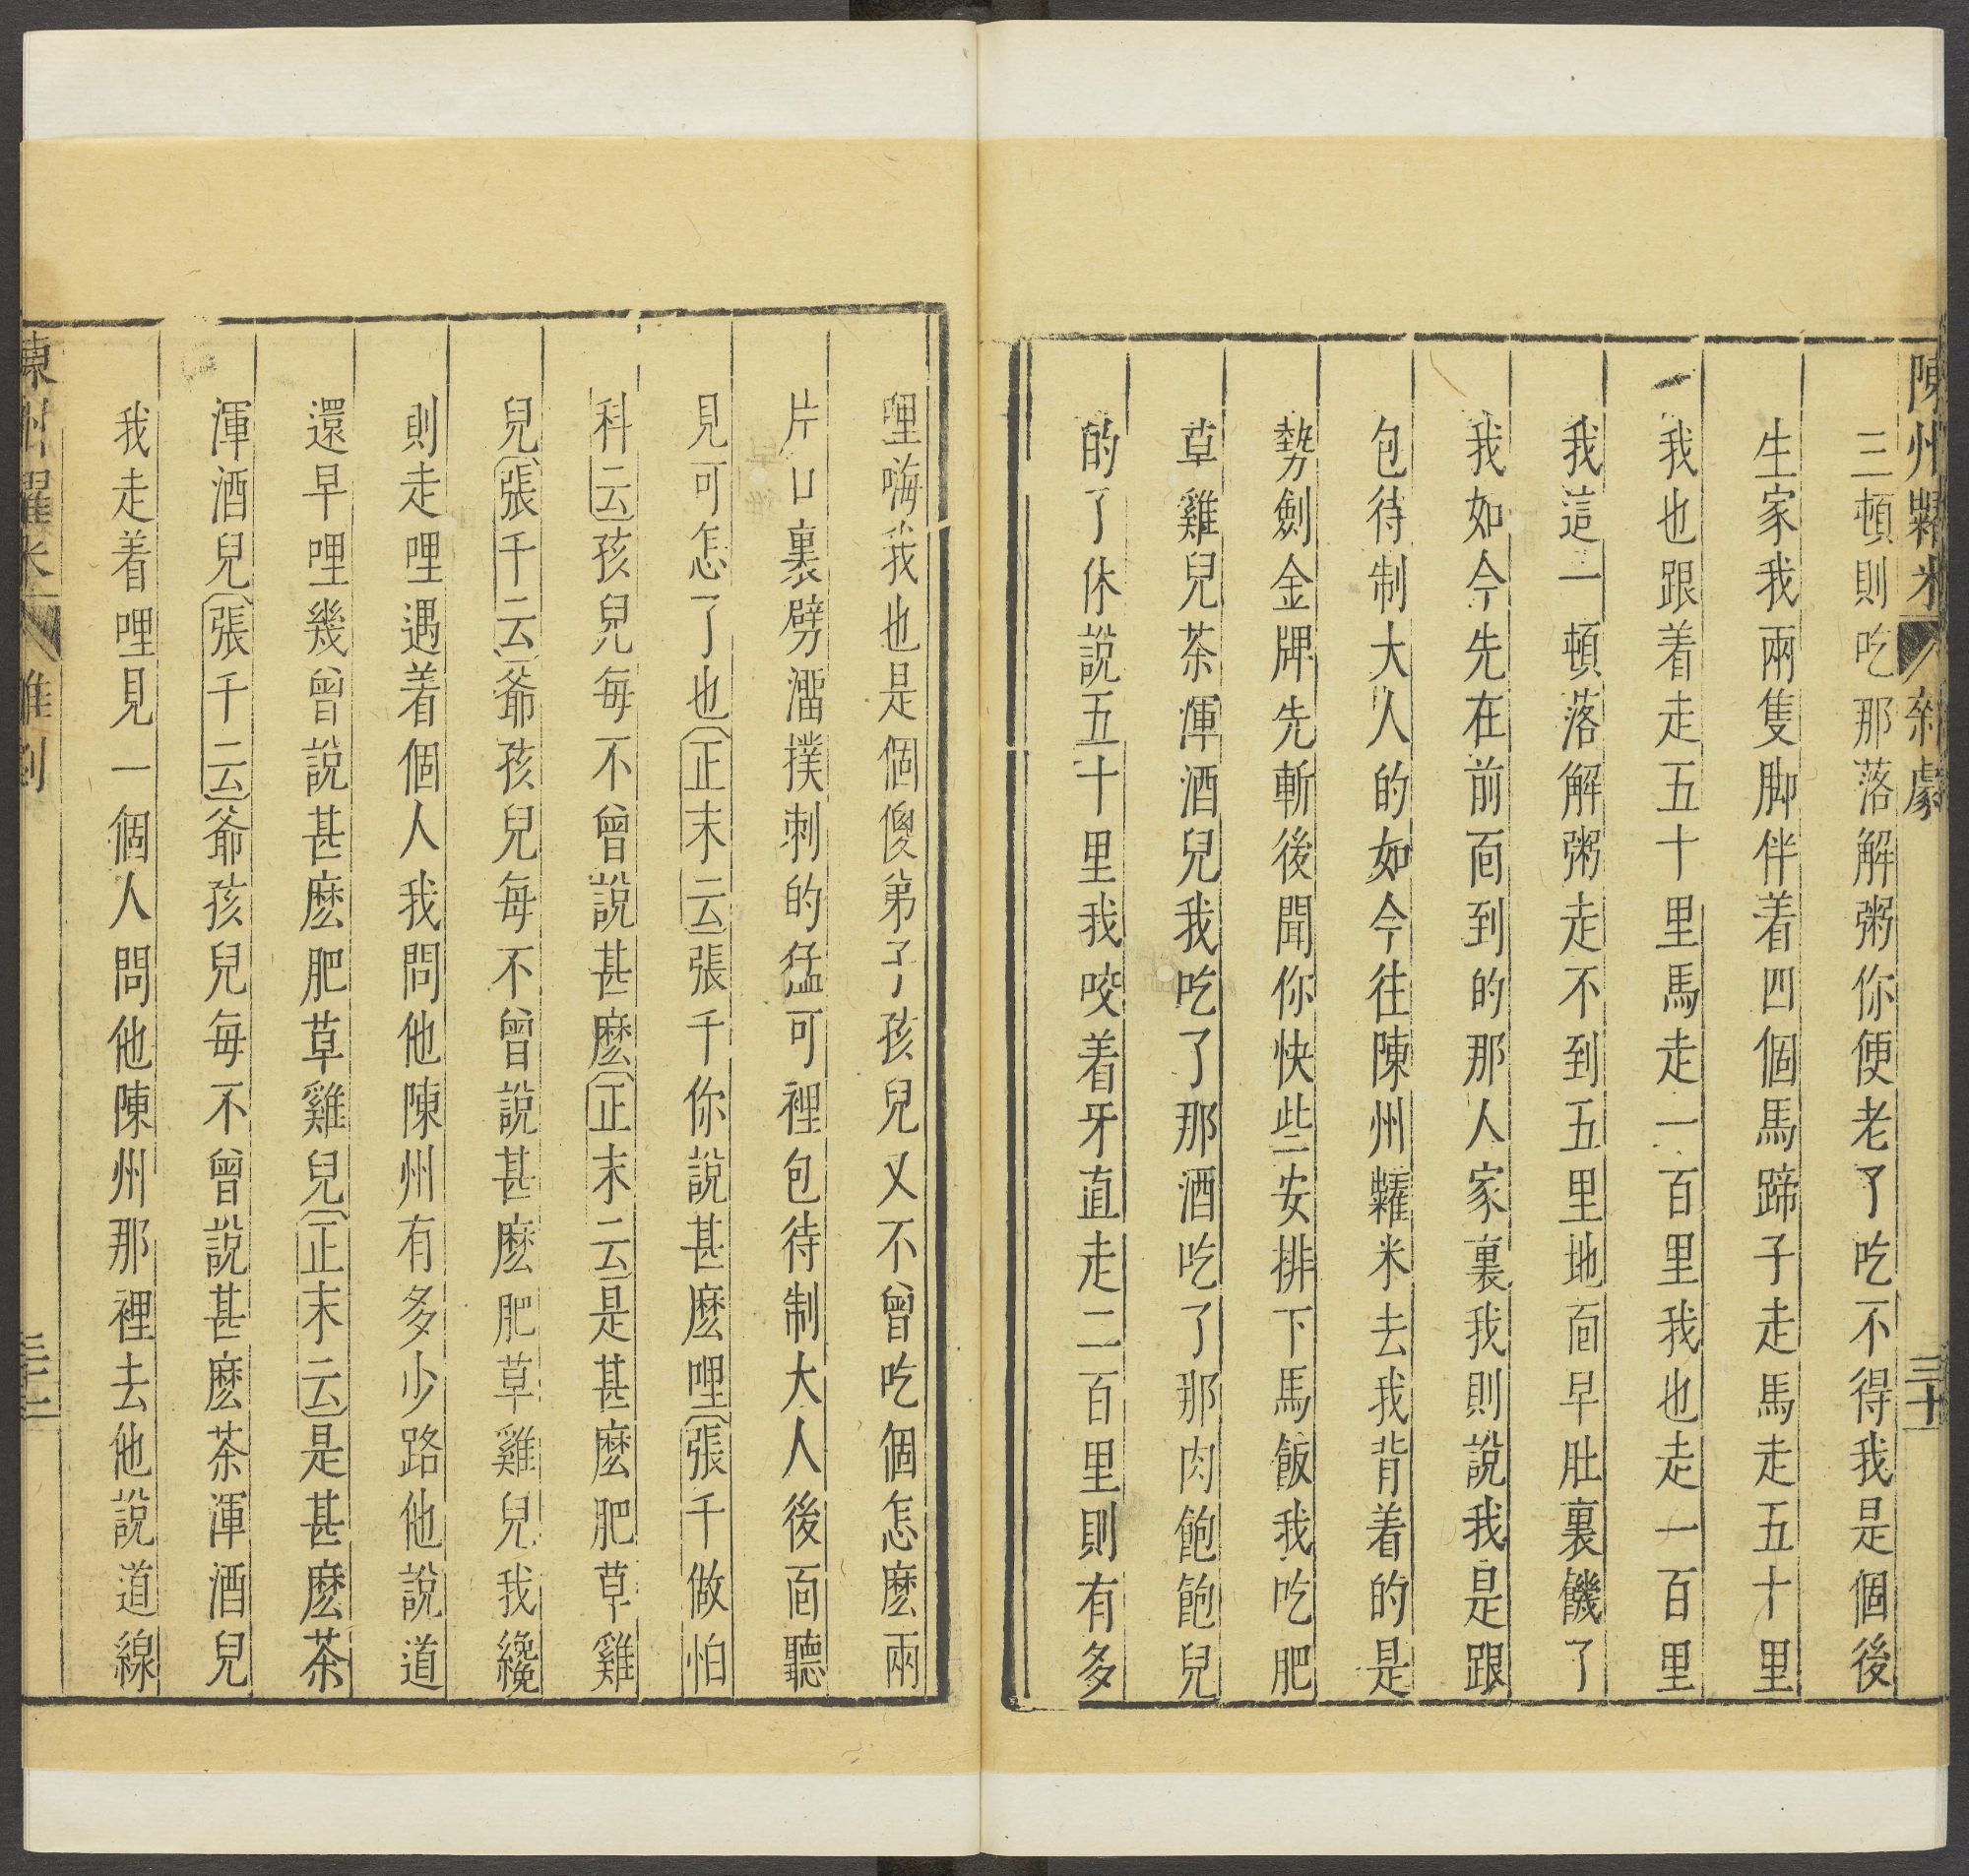 陳州糶米 雜劇 三十
三頓則吃那落解粥你便老了吃不得我是個後
生家我兩隻脚伴着四個馬蹄子走馬走五十里
我也跟着走五十里馬走一百里我也走一百里
我這一頓落解粥走不到五里地面早肚裏饑了
我如今先在前面到的那人家裏我則說我是跟
包待制大人的如今往陳州糶米去我背着的是
勢劍金牌先斬後聞你快些安排下馬飯我吃肥
草雞兒茶渾酒兒我吃了那酒吃了那肉飽飽兒
的了休說五十里我咬着牙直走二百里則有多
哩嗨我也是個傻弟子孩兒又不曾吃個怎麽兩
片口裏劈溜撲剌的猛可裡包待制大人後面聽
見可怎了也正末云張千你說甚麽哩張千做怕
科云孩兒每不曾說甚麽正末云是甚麽肥草雞
兒張千云爺孩兒每不曾說甚麽肥草雞兒我纔
則走哩遇着個人我問他陳州有多少路他說道
還早哩幾曾說甚麽肥草雞兒正末云是甚麽茶
渾酒兒張千云爺孩兒每不曾說甚麽茶渾酒兒
我走着哩見一個人問他陳州那裡去他說道線